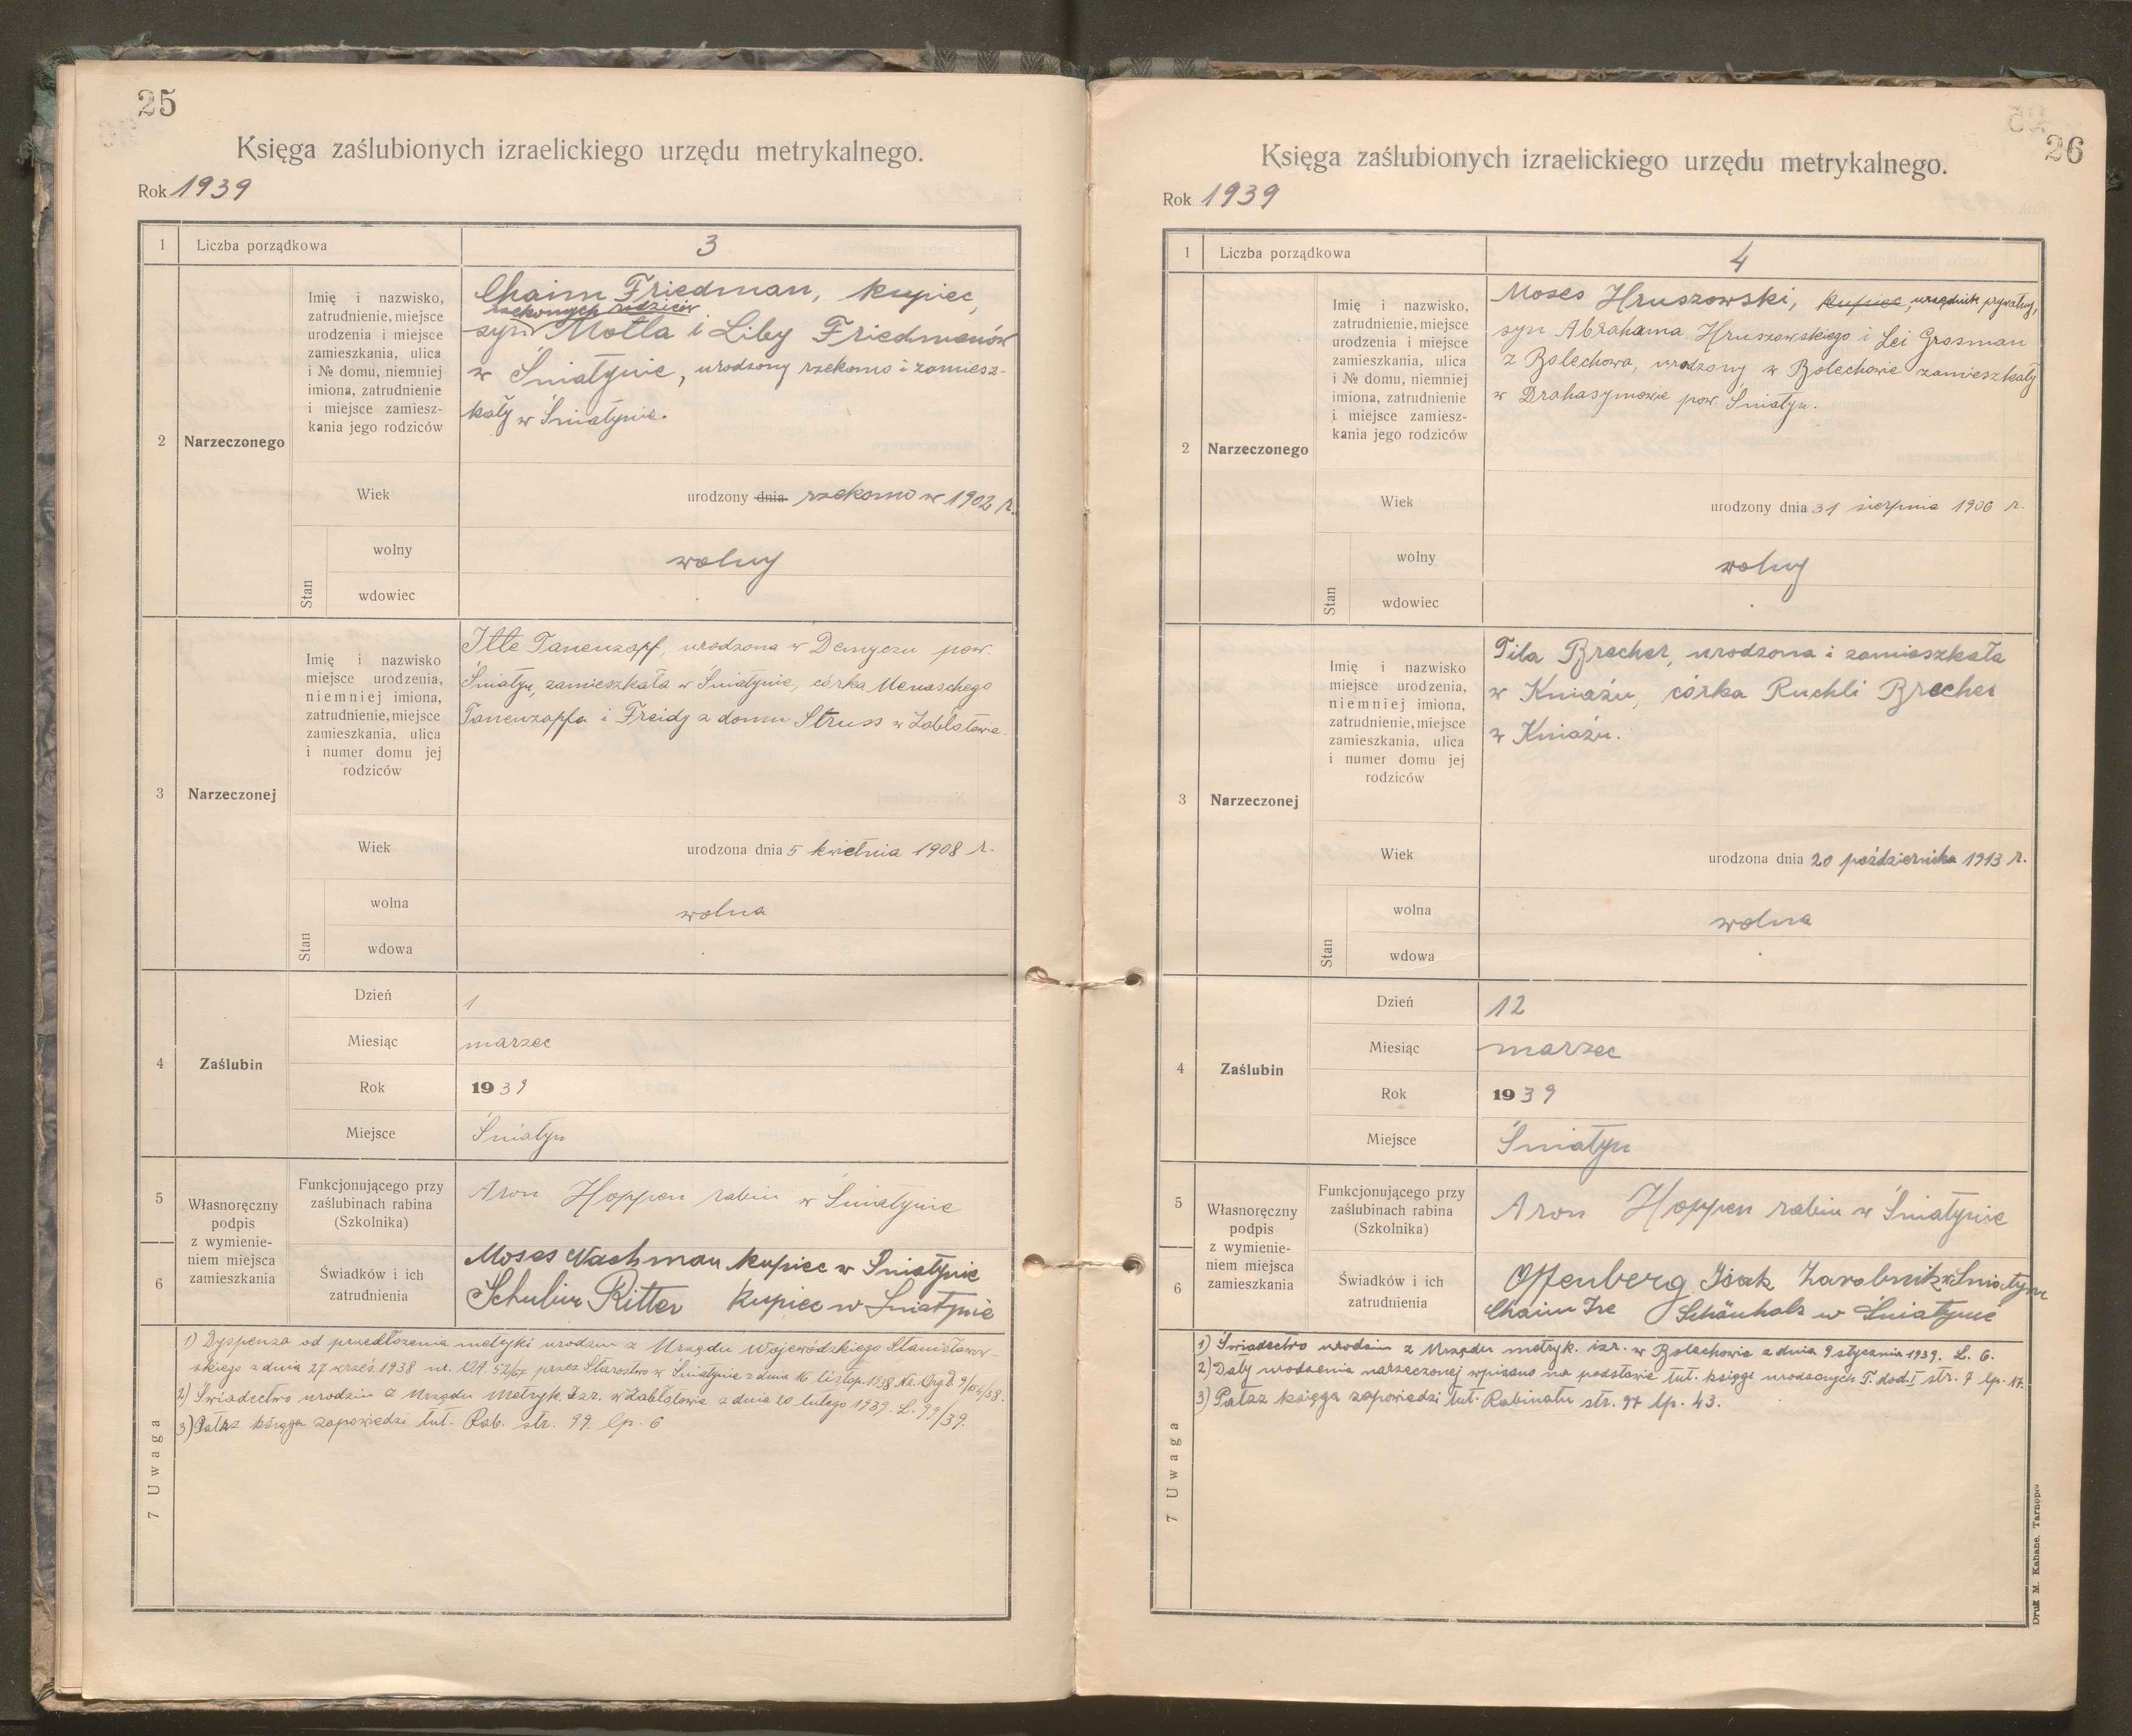 25
Księga zaślubionych izraelickiego urzędu metrykalnego.
Rok 1939
1 Liczba porządkowa 3
2 Narzeczonego
Imię i nazwisko,
zatrudnienie, miejsce
urodzenia i miejsce
zamieszkania, ulica
i № domu, niemniej
imiona, zatrudnienie
i miejsce zamiesz-
kania jego rodziców
Chaim Friedman, kupiec,
rzekomych rodziców
syn Motla i Liby Friedmanów
w Śniatynie, urodzony rzekomo i zamiesz-
kały w Śniatynie.
Wiek urodzony dnia rzekomo w 1902 r.
Stan
wolny wolny
wdowiec
3 Narzeczonej
Imię i nazwisko
miejsce urodzenia,
niemniej imiona,
zatrudnienie, miejsce
zamieszkania, ulica
i numer domu jej
rodziców
Itte Tanenzapf, urodzona w Demyczu pow.
Śniatyn, zamieszkała w Śniatynie, córka Menaschego
Tanenzapfa i Freidy z domu Struss w Zabłotowie.
Wiek urodzona dnia 5 kwietnia 1908 r.
Stan
wolna wolna
wdowa
4 Zaślubin
Dzień 1
Miesiąc marzec
Rok 1939
Miejsce Śniatyn
5
6
Własnoręczny
podpis
z wymienie-
niem miejsca
zamieszkania
Funkcjonującego przy
zaślubinach rabina
(Szkolnika)
Aron Hoppen rabin w Śniatynie
Świadków i ich
zatrudnienia
Moses Nachman kupiec w Śniatynie
Schubin Ritter kupiec w Śniatynie
7 Uwaga
1) Dyspenza od przedłożenia metryki urodzin z Urzędu Wojewódzkiego Stanisławow-
skiego z dnia 27 wrześ. 1938 nr. przez Starostwo w Śniatynie z dnia 16 listop. 1938
2) Świadectwo urodzin z Urzędu Metryk. Izr. w Zabłotowie z dnia 20 lutego 1939. L. 99/39.
3) Patrz księga zapowiedzi tut. Rab. str. 99. lp. 6
26
Księga zaślubionych izraelickiego urzędu metrykalnego.
Rok 1939
1 Liczba porządkowa 4
2 Narzeczonego
Imię i nazwisko,
zatrudnienie, miejsce
urodzenia i miejsce
zamieszkania, ulica
i № domu, niemniej
imiona, zatrudnienie
i miejsce zamiesz-
kania jego rodziców
Moses Hruszowski, kupiec, urzędnik prywatny,
syn Abrahama Hruszowskiego i Lei Grosman
z Bolechowa, urodzony w Bolechowie zamieszkały
w Drahasymowie pow. Śniatyn.
Wiek urodzony dnia 31 sierpnia 1906 r.
Stan
wolny wolny
wdowiec
3 Narzeczonej
Imię i nazwisko
miejsce urodzenia,
niemniej imiona,
zatrudnienie, miejsce
zamieszkania, ulica
i numer domu jej
rodziców
Tila Brecher, urodzona i zamieszkała
w Kniażu, córka Ruchli Brecher
w Kniażu.
Wiek urodzona dnia 20 października 1913 r.
Stan
wolna wolna
wdowa
4 Zaślubin
Dzień 12
Miesiąc marzec
Rok 1939
Miejsce Śniatyn
5
6
Własnoręczny
podpis
z wymienie-
niem miejsca
zamieszkania
Funkcjonującego przy
zaślubinach rabina
(Szkolnika)
Aron Hoppen rabin w Śniatynie
Świadków i ich
zatrudnienia
Offenberg Isak Zarobnik w Śniatyn
Chaim Schönholz w Śniatynie
7 Uwaga
1) Świadectwo urodzin z Urzędu metryk. izr. w Bolechowie z dnia 9 stycznia 1939. L. 6.
2) Daty urodzenia narzeczonej wpisano na podstawie tut. księgi urodzonych T. dod. I str. 7 lp. 17.
3) Patrz księga zapowiedzi tut. Rabinatu str. 97 lp. 43.
Druk M. Kahane. Tarnopol